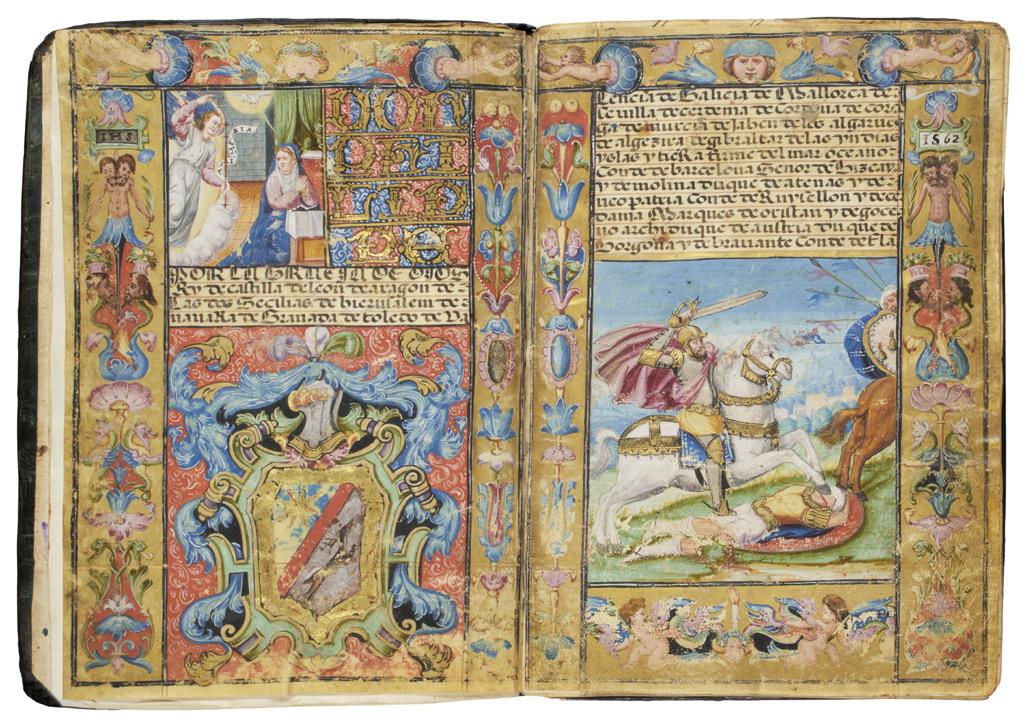 IHS
DON
PHE
LIPE
SEGVDO
POR LA GRACIA DE DIOS
Rey de castilla de leon de aragon de
Las dos Secilias de hierusalem de
navaRa de Granada de toledo de Va
lencia de Galicia de Mallorca de
Sevilla de cerdenia de Cordova de corce
ga de murcia de Jahen de los algarves
de algezira de gibraltar de las yndias
yslas y tieRa firme del mar oceano
Conde de barcelona Señor de Bizcaia
y de molina duque de atenas y de
neopatria Conde de Ruysellon y de cer
dania Marques de oristan y de gocea
no archiduque de austria duque de
Borgoña y de bravante Conde de fla
1562